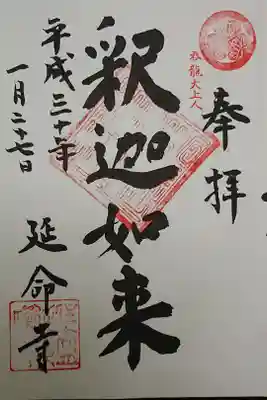 奉拝
釈迦如来
平成三十年
一月二十七日
延命寺